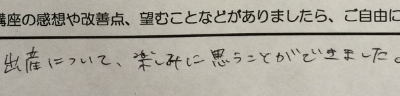 講座の感想や改善点、望むことなどがありましたら、ご自由に
出産について、楽しみに思うことができました。